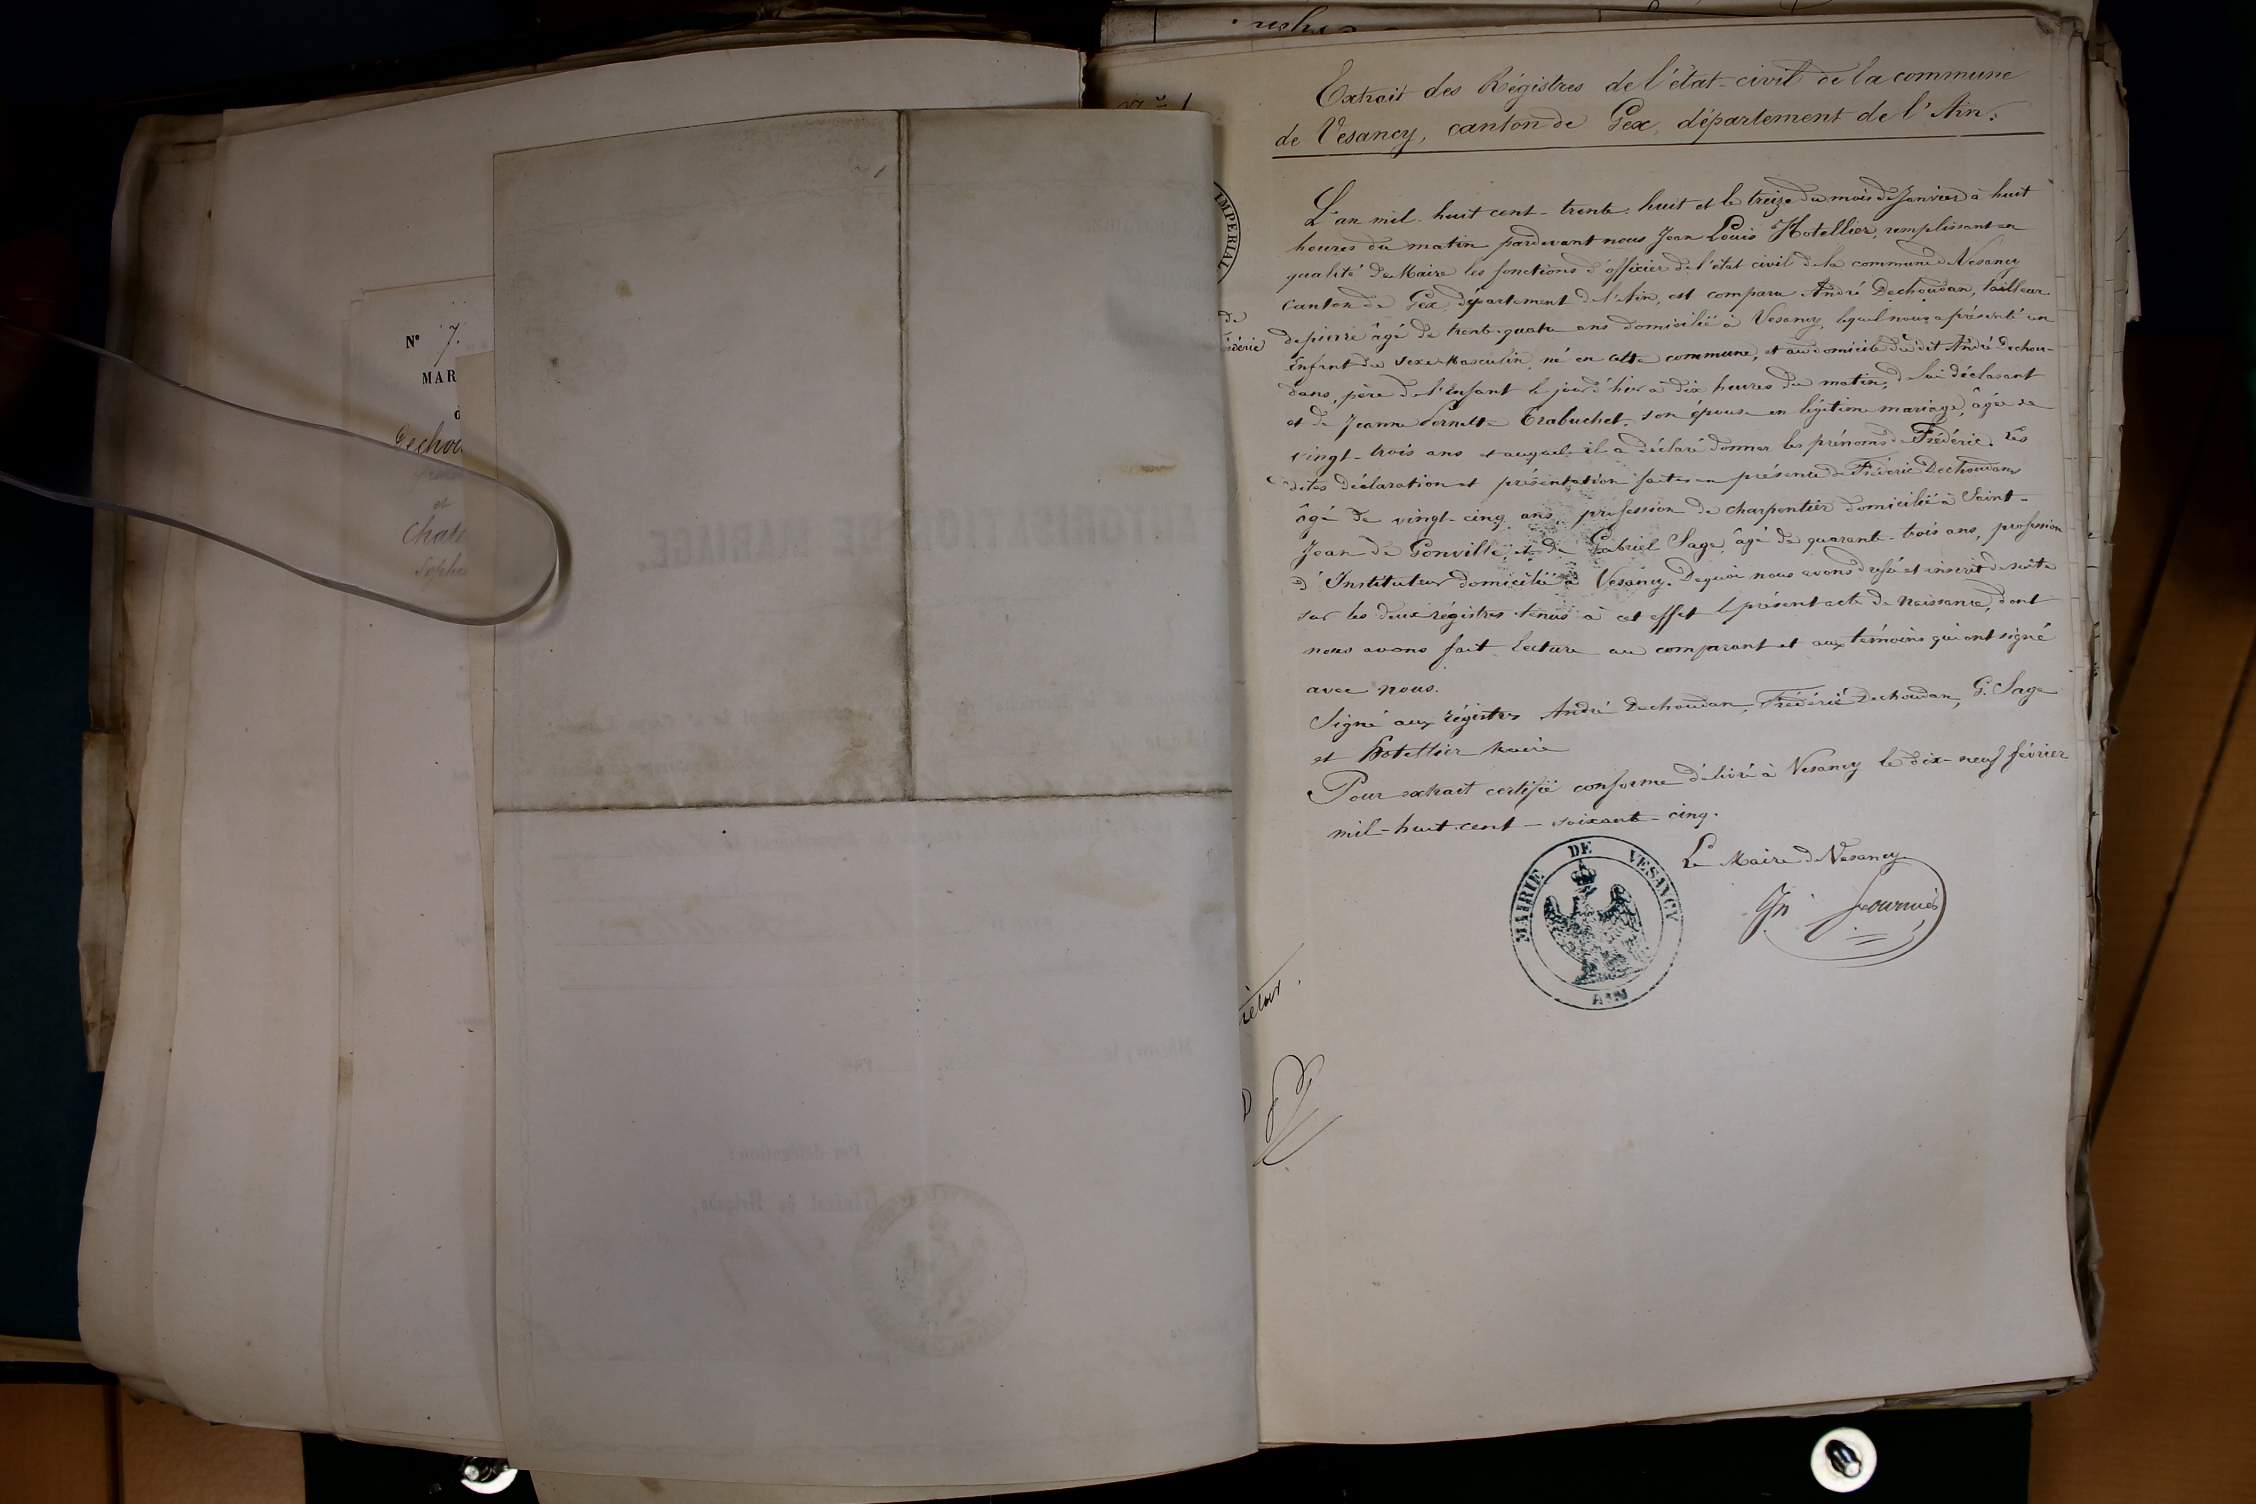 N° 7.
MAR
Dechou
et
Chate
Sophi
IMPERIAL
Extrait des Régistres de l'état-civil de la commune
de Vesancy, canton de Gex, département de l'Ain.
L'an mil huit cent trente huit et le treize du mois de Janvier à huit
heures du matin pardevant nous Jean Louis Hotellier, remplissant en
qualité de Maire les fonctions d'officier de l'état civil de la commune de Vesancy
canton de Gex, département de l'Ain, est comparu André Dechoudan, tailleur
de pierre âgé de trente-quatre ans domicilié à Vesancy, lequel nous a présenté un
Enfant du sexe Masculin, né en cette commune, et au domicile du dit André Dechou-
dans, père de l'Enfant le jour d'hier à dix heures du matin, de lui déclarant
et de Jeanne Pernette Trabuchet, son épouse en légitime mariage, âgée de
vingt-trois ans et auquel il a déclaré donner les prénoms de Frédéric. Les
dites déclaration et présentation faites en présence de Frédéric Dechoudans
âgé de vingt-cinq ans, profession de charpentier domicilié à Saint-
Jean de Gonville, et de Gabriel Sage, âgé de quarante-trois ans, profession
d'Instituteur domicilié à Vesancy. De quoi nous avons dressé et inscrit de suite
sur les deux régistres tenus à cet effet le présent acte de naissance, dont
nous avons fait lecture au comparant et aux témoins qui ont signé
avec nous.
Signé aux régistres André Dechoudan, Frédéric Dechoudan, G. Sage
et Hotellier Maire
Pour extrait certifié conforme délivré à Vesancy le dix-neuf février
mil-huit cent-soixante-cinq.
Le Maire de Vesancy
MAIRIE DE VESANCY
AIN